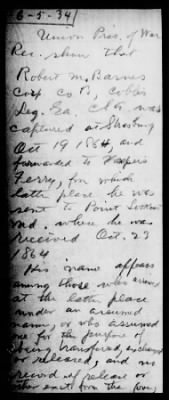 6-5-34
Union Pris. of War
Rec. show that
Robert M. Barnes
Corp Co B, Cobb's
Leg. Ga. CSA was
captured at Strasburg
Oct 19 1864, and
forwarded to Harpers
Ferry, from which
latter place he was
sent to Point Lookout
Md. where he was
received Oct. 23
1864
His name appears
among those who
at the latter place
under an assumed
name, or who assumed
one for the purpose of
being transferred, exchanged
or released, and no
record of release or
other exit from the